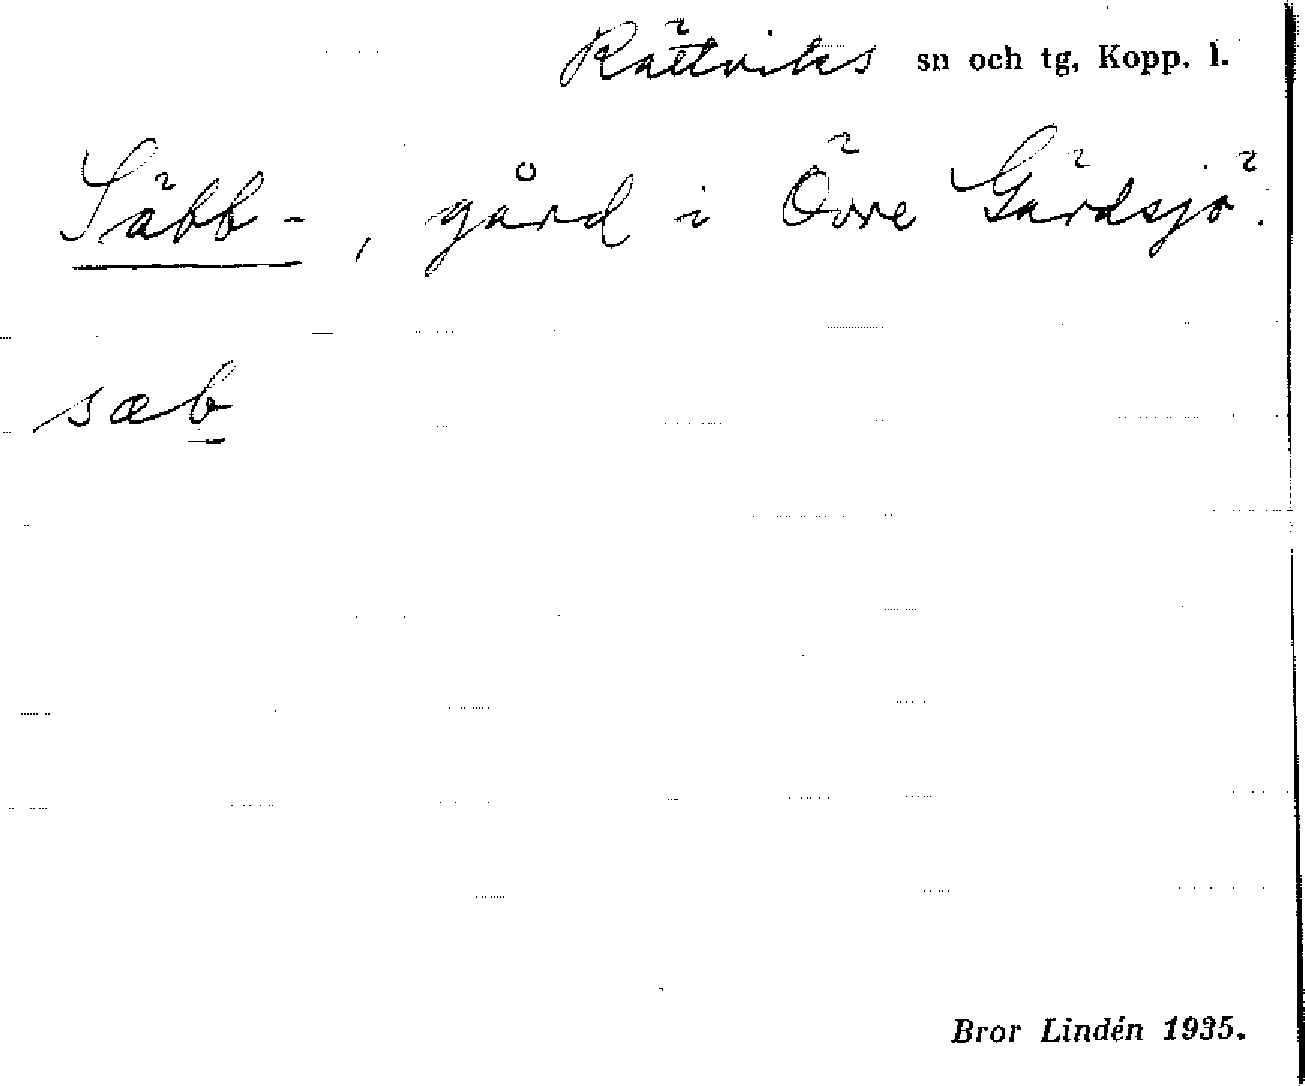 Rättviks sn och tg, Kopp. l.
Säbb-, gård i Övre Gärdsjö.
sæb
Bror Lindén 1935.